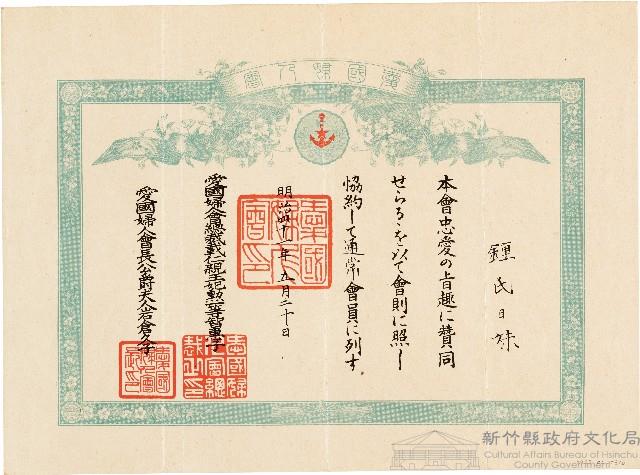 愛國婦人會
鍾氏日妹
本會忠愛の旨趣に賛同
せらるゝを以て會則に照し
協約して通常會員に列す
明治四十一年五月二十日
愛國婦人會總裁載仁親王妃勲一等智惠子
愛國婦人會長公爵夫人岩倉久子
新竹縣政府文化局
Cultural Affairs Bureau of Hsinchu
County Government